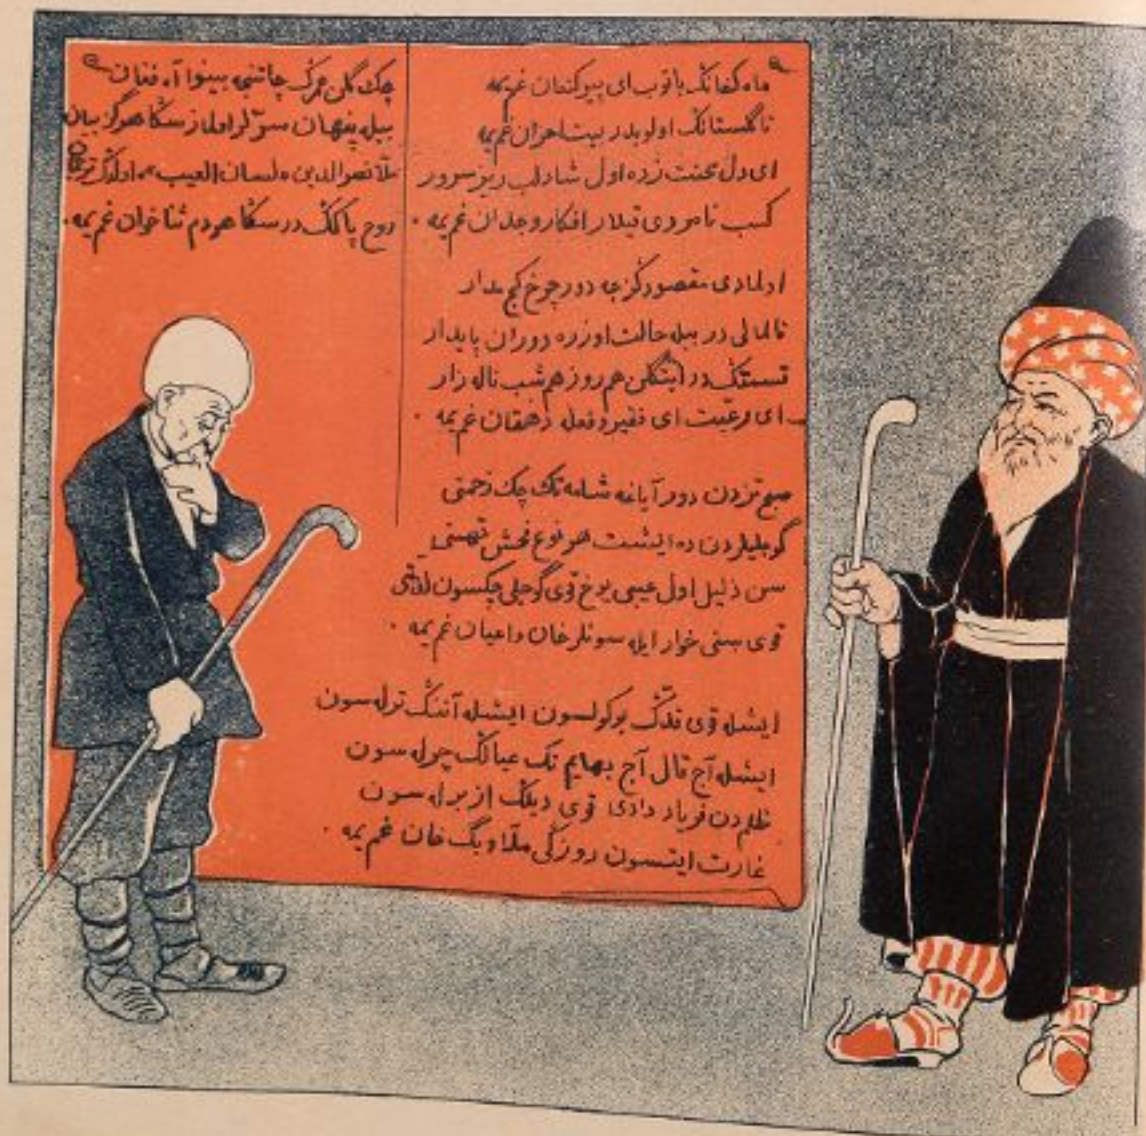 ماه کنعانڭ باتوب ای پیر کنعان غم یمه
تا گلستانڭ اولوبدر بیت احزان غم یمه
ای دل محنت زده اول شاد لب ریز سرور
کسب نامردی قیلار افکار وجدان غم یمه
اولمادی مقصودڭزجه دور چرخ کج مدار
قالمالی در بیله حالت اوزره دوران پایدار
قسمتڭ در هم روز هم شب ناله زار
ای رعیت ای فقیر و فعله دهقان غم یمه
صبح تزدن دور آیاغه شامه تك چك زحمتی
گوجلیلردن ده ایشت هر نوع فحش تهمتی
سن ذلیل اول عیبی یوخ قوی گوجلی چکسون لذتی
قوی سنی خوار ایله سونلر خان و اعیان غم یمه
ایشله قوی قدڭ بوکولسون ایشله آننڭ ترله سون
ایشله آج قال آج بهایم تك عیالڭ چوله سون
ظلمدن فریاد دادی قوی دیلڭ ازبرله سون
غارت ایتسون روزگی ملا و بگ خان غم یمه
چك گلن مرگ چاتنجه بینوا آه فغان
بیله پنهان سوزلر اولماز سڭا هرگز بیان
ملا نصرالدین لسان الغیب اولدڭ
روح پاكڭ در سڭا هردم ثنا خوان غم یمه